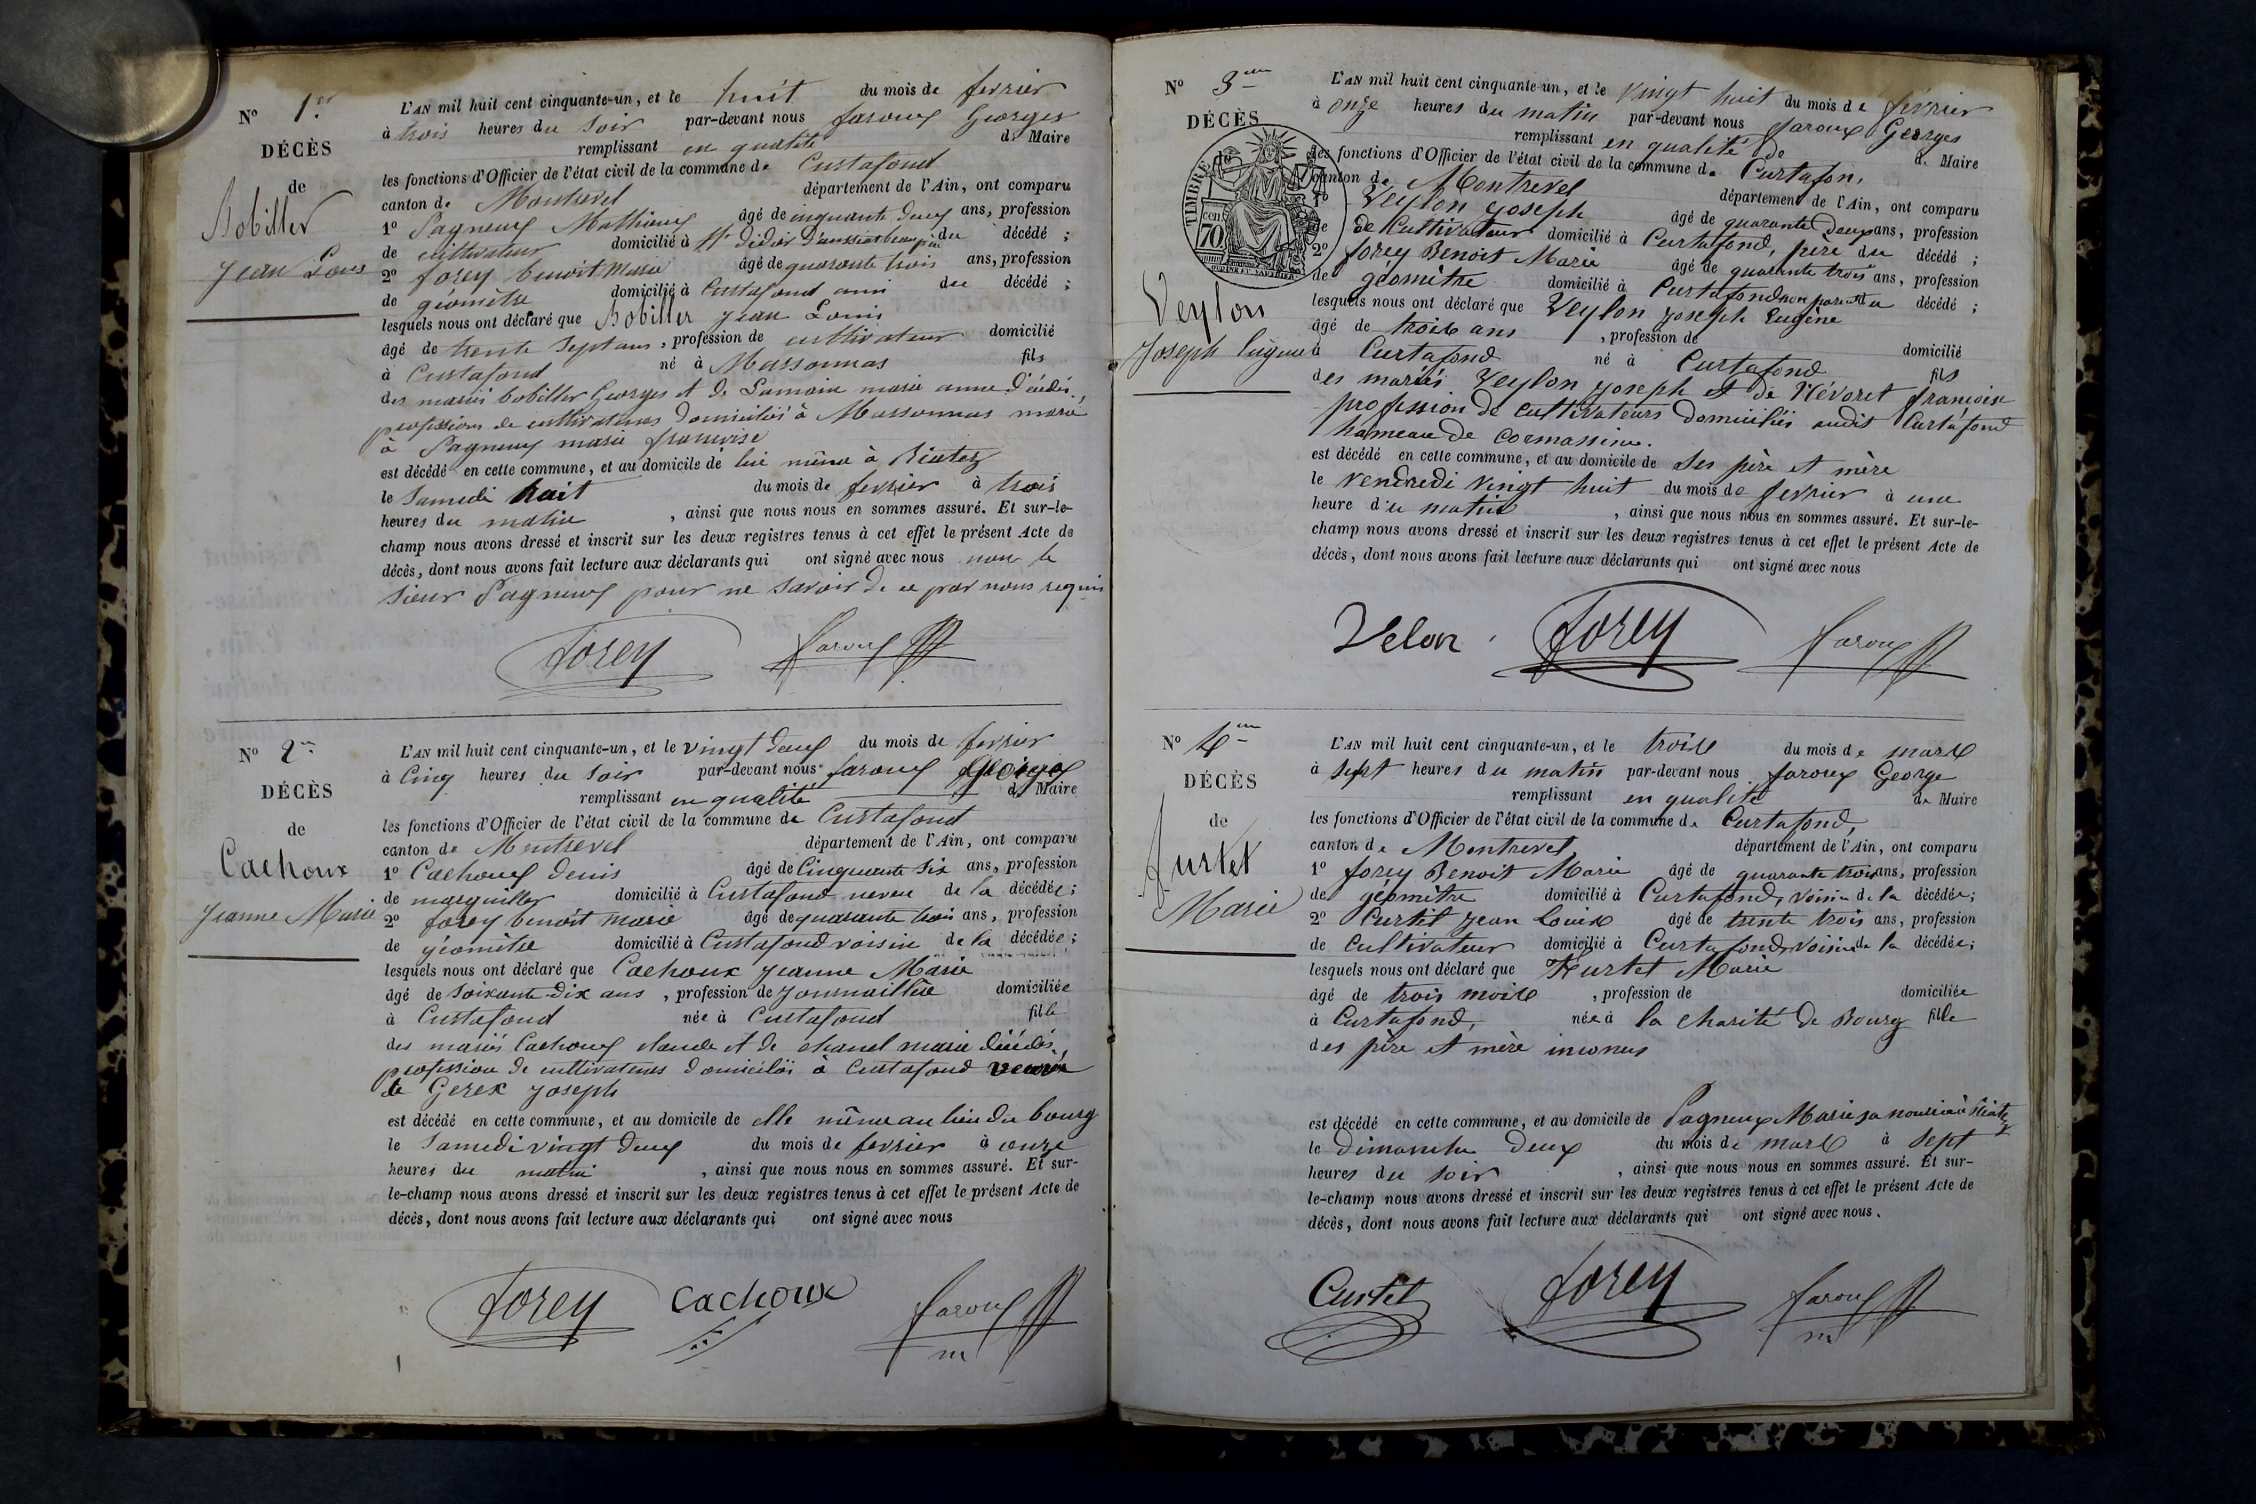 N° 1er
DÉCÈS
de
Bobiller
Jean Louis
L'AN mil huit cent cinquante-un, et le huit du mois de fevrier
à trois heures du soir par-devant nous faroux Georges
remplissant en qualité de Maire
les fonctions d'Officier de l'état civil de la commune de Curtafond
canton de Montrevel département de l'Ain, ont comparu
1° Pagneux Mathieu âgé de cinquante deux ans, profession
de cultivateur domicilié à St didier d'aussiat beau père du décédé ;
2° forey benoit Marie âgé de quarante trois ans, profession
de géomètre domicilié à Curtafond ami du décédé ;
lesquels nous ont déclaré que Bobiller Jean Louis
âgé de trente Sept ans, profession de cultivateur domicilié
à Curtafond né à Marsonnas fils
des mariés bobiller Georges et de Lamain marie anne décédés,
professions de cultivateurs domiciliés à Marsonnas marié
à Pagneux marie francoise
est décédé en cette commune, et au domicile de lui même à Biatez
le Samedi huit du mois de fevrier à trois
heures du matin, ainsi que nous nous en sommes assuré. Et sur-le-
champ nous avons dressé et inscrit sur les deux registres tenus à cet effet le présent Acte de
décès, dont nous avons fait lecture aux déclarants qui ont signé avec nous non le
sieur Pagneux pour ne savoir de ce par nous requis
forey faroux
N° 2me
DÉCÈS
de
Cachoux
Jeanne Marie
L'AN mil huit cent cinquante-un, et le vingt deux du mois de fevrier
à Cinq heures du soir par-devant nous faroux George
remplissant en qualité de Maire
les fonctions d'Officier de l'état civil de la commune de Curtafond
canton de Montrevel département de l'Ain, ont comparu
1° Cachoux Denis âgé de Cinquante Six ans, profession
de marguiller domicilié à Curtafond neveu de la décédée ;
2° forey benoit marie âgé de quarante trois ans, profession
de géomètre domicilié à Curtafond voisin de la décédée ;
lesquels nous ont déclaré que Cachoux Jeanne Marie
âgé de Soixante-Dix ans, profession de Journaillère domiciliée
à Curtafond née à Curtafond fille
des mariés Cachoux claude et de chanel marie décédés,
profession de cultivateurs domiciliés à Curtafond veuve
de Gerex Joseph
est décédé en cette commune, et au domicile de elle même au lieu du bourg
le Samedi vingt deux du mois de fevrier à onze
heures du matin, ainsi que nous nous en sommes assuré. Et sur-
le-champ nous avons dressé et inscrit sur les deux registres tenus à cet effet le présent Acte de
décès, dont nous avons fait lecture aux déclarants qui ont signé avec nous
forey Cachoux faroux
m
N° 3me
DÉCÈS
TIMBRE
70
Veylon
Joseph Eugène
L'AN mil huit cent cinquante-un, et le vingt huit du mois de février
à onze heures du matin par-devant nous faroux Georges
remplissant en qualité de de Maire
les fonctions d'Officier de l'état civil de la commune de Curtafon,
canton de Montrevel département de l'Ain, ont comparu
1° Veylon Joseph âgé de quarante Deux ans, profession
de de Cultivateur domicilié à Curtafond, père du décédé ;
2° forey Benoit Marie âgé de quarante trois ans, profession
de géomètre domicilié à Curtafond non parent du décédé ;
lesquels nous ont déclaré que Veylon Joseph Eugène
âgé de trois ans, profession de
à Curtafond né à Curtafond domicilié fils
des mariés Veylon Joseph et de Névoret françoise
profession de cultivateurs domiciliés audit Curtafond
hameau de Cormassine.
est décédé en cette commune, et au domicile de Ses père et mère
le vendredi vingt huit du mois de fevrier à une
heure du matin, ainsi que nous nous en sommes assuré. Et sur-le-
champ nous avons dressé et inscrit sur les deux registres tenus à cet effet le présent Acte de
décès, dont nous avons fait lecture aux déclarants qui ont signé avec nous
Velon forey faroux
N° 4me
DÉCÈS
de
Hurtet
Marie
L'AN mil huit cent cinquante-un, et le trois du mois de mars
à Sept heures du matin par-devant nous faroux George
remplissant en qualité de Maire
les fonctions d'Officier de l'état civil de la commune de Curtafond,
canton de Montrevel, département de l'Ain, ont comparu
1° forey Benoit Marie âgé de quarante trois ans, profession
de géomètre domicilié à Curtafond, voisin de la décédée ;
2° Curtil Jean Louis âgé de trente trois ans, profession
de Cultivateur domicilié à Curtafond, voisin de la décédée ;
lesquels nous ont déclaré que Hurtet Marie
âgé de trois mois, profession de domiciliée
à Curtafond, née à la charité de Bourg fille
des père et mère inconus
est décédé en cette commune, et au domicile de Pagneux Marie sa nourice à Biatez
le dimanche Deux du mois de mars à Sept
heures du soir, ainsi que nous nous en sommes assuré. Et sur-
le-champ nous avons dressé et inscrit sur les deux registres tenus à cet effet le présent Acte de
décès, dont nous avons fait lecture aux déclarants qui ont signé avec nous.
Curtil forey faroux
m